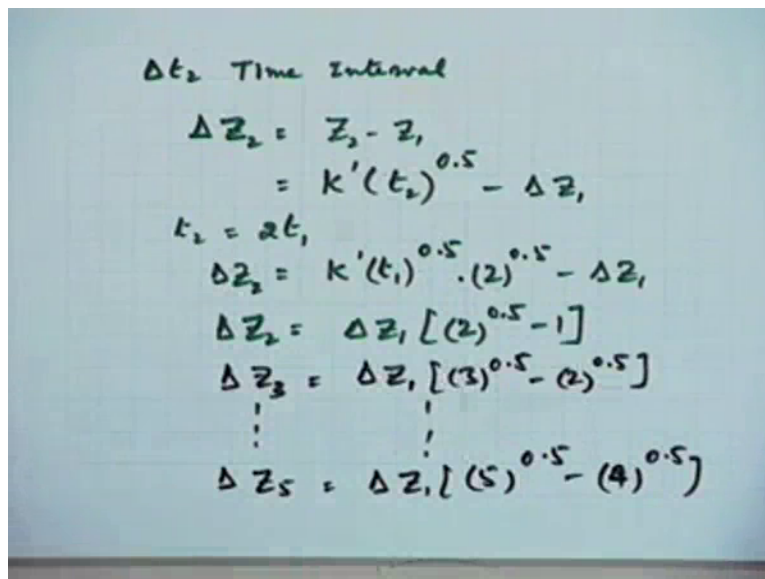 Δt₂ Time Interval
ΔZ₂ = Z₂ - Z₁
= K'(t₂)^0.5 - ΔZ₁
t₂ = 2t₁
ΔZ₂ = K'(t₁)^0.5 . (2)^0.5 - ΔZ₁
ΔZ₂ = ΔZ₁ [(2)^0.5 - 1]
ΔZ₃ = ΔZ₁ [(3)^0.5 - (2)^0.5]
ΔZ₅ = ΔZ₁ [(5)^0.5 - (4)^0.5]